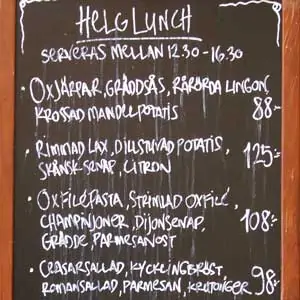 HELGLUNCH
SERVERAS MELLAN 12.30 - 16.30
• OXJÄRPAR, GRÄDDSÅS, RÅRÖRDA LINGON,
KROSSAD MANDELPOTATIS 88:-
• RIMMAD LAX, DILLSTUVAD POTATIS,
SKÅNSK SENAP, CITRON 125:-
• OXFILÉPASTA, STRIMLAD OXFILÉ,
CHAMPINJONER, DIJONSENAP,
GRÄDDE, PARMESANOST 108:-
• CEASARSALLAD, KYCKLINGBRÖST
ROMANSALLAD, PARMESAN, KRUTONGER 98:-